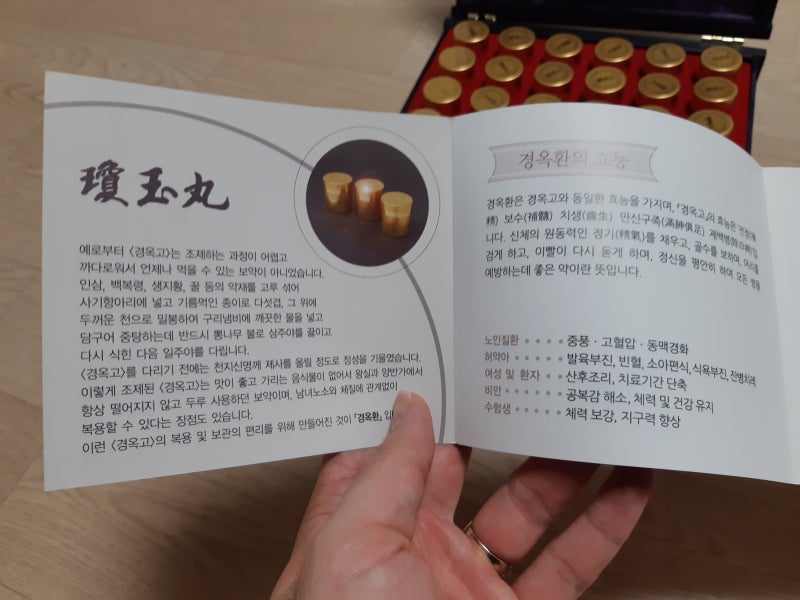 瓊玉丸
예로부터 〈경옥고〉는 조제하는 과정이 어렵고
까다로워서 언제나 먹을 수 있는 보약이 아니었습니다.
인삼, 백복령, 생지황, 꿀 등의 약재를 고루 섞어
사기항아리에 넣고 기름먹인 종이로 다섯겹, 그 위에
두꺼운 천으로 밀봉하여 구리냄비에 깨끗한 물을 넣고
담구어 중탕하는데 반드시 뽕나무 불로 삼주야를 끓이고
다시 식힌 다음 일주야를 다립니다.
〈경옥고〉를 다리기 전에는 천지신명께 제사를 올릴 정도로 정성을 기울였습니다.
이렇게 조제된 〈경옥고〉는 맛이 좋고 가리는 음식이 없어서 왕실과 양반가에서
항상 떨어지지 않고 두루 사용하던 보약이며, 남녀노소와 체질에 관계없이
복용할 수 있다는 장점도 있습니다.
이런 〈경옥고〉의 복용 및 보관의 편리를 위해 만들어진 것이 「경옥환」 입
경옥환의 효능
경옥환은 경옥고와 동일한 효능을 가지며, 「경옥고」의 효능은 '전정(
精) 보수(補髓) 치생(齒生) 만신구족(滿神俱足) 제백병(除百病)'입
니다. 신체의 원동력인 정기(精氣)를 채우고, 골수를 보하며, 머리를
검게 하고, 이빨이 다시 돋게 하며, 정신을 평안히 하여 모든 병을
예방하는데 좋은 약이란 뜻입니다.
노인질환 ····· 중풍 · 고혈압 · 동맥경화
허약아 ····· 발육부진, 빈혈, 소아편식, 식욕부진, 잔병치레
여성 및 환자 ···· 산후조리, 치료기간 단축
비만 ····· 공복감 해소, 체력 및 건강 유지
수험생 ····· 체력 보강, 지구력 향상